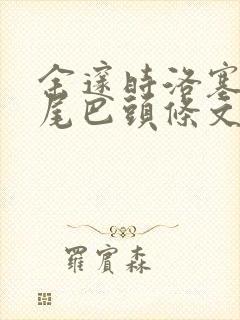 金邃時洛塞
尾巴頭條文
羅賓森